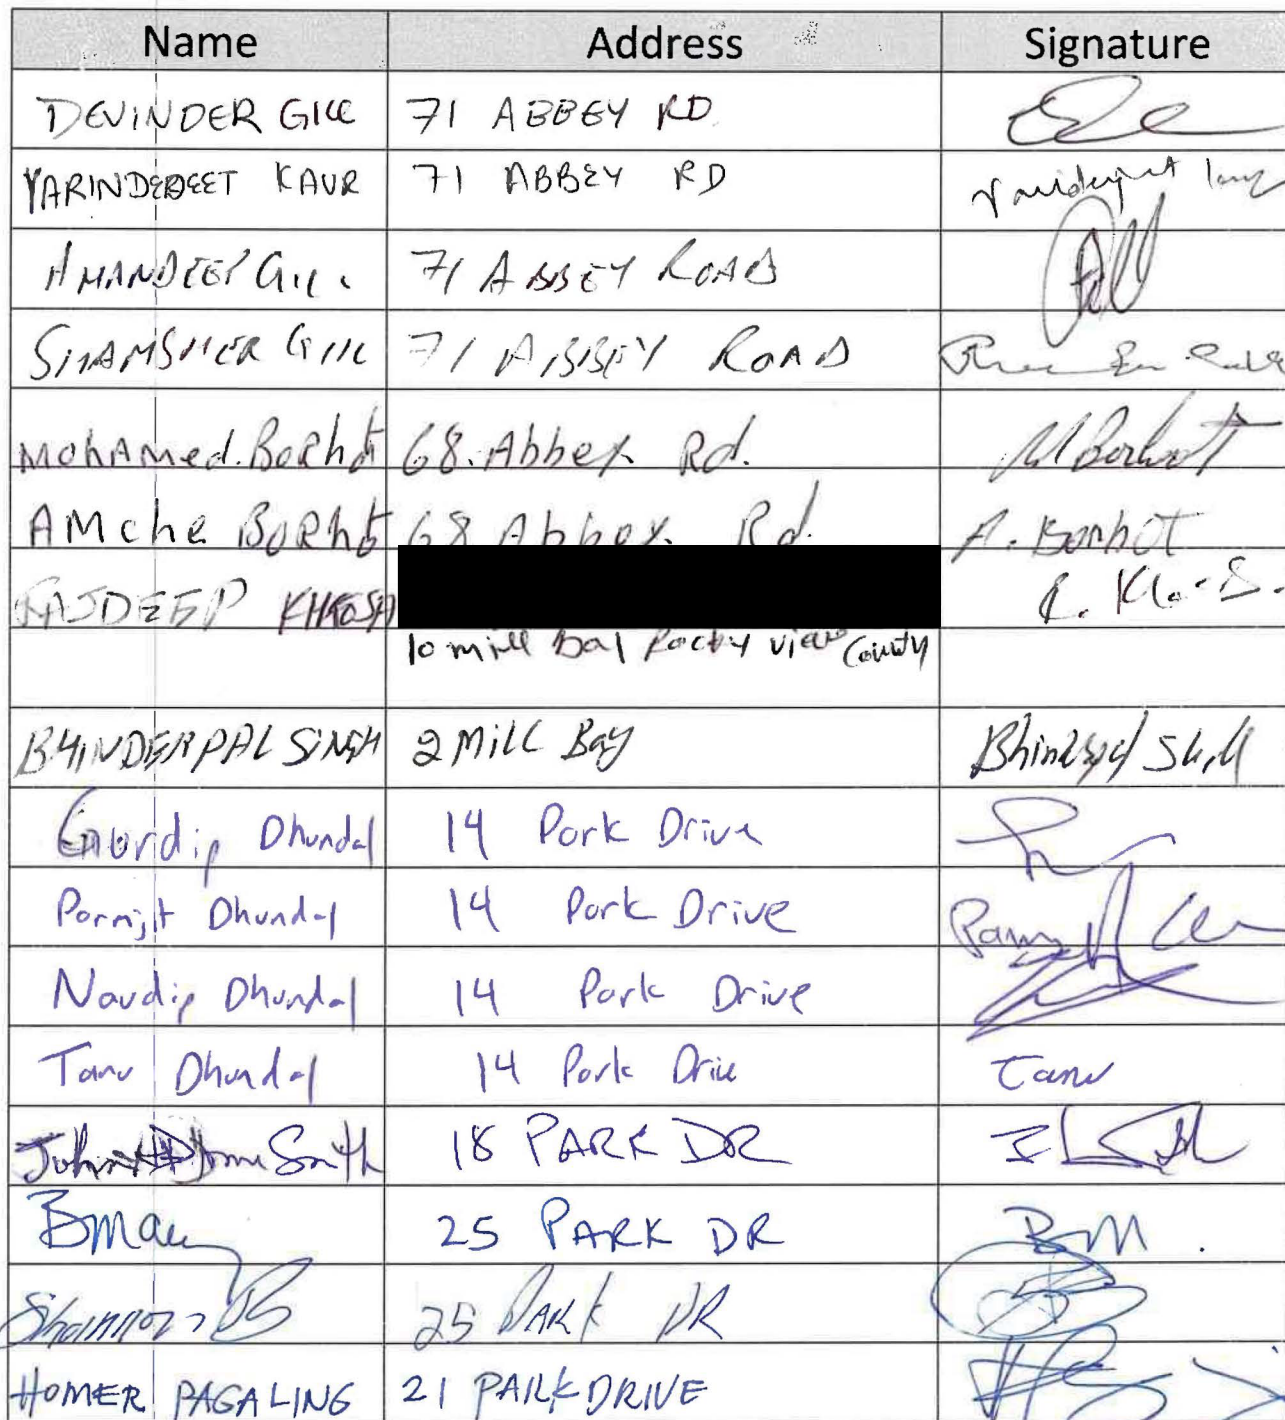 Name Address Signature
DEVINDER GILL 71 ABBEY RD
VARINDERJEET KAUR 71 ABBEY RD
AMANDEEP GILL 71 ABBEY ROAD
SHAMSHER GILL 71 ABBEY ROAD
MOhAMed. BoRhot 68. Abbey Rd. M Borhot
AMche BORhot 68 Abbey Rd. A. Borhot
RAJDEEP KHOSA
10 mill Bay Rocky view County
BHINDERPAL SINGH 2 Mill Bay
Gurdip Dhundal 14 Park Drive
Parmjit Dhundal 14 Park Drive
Navdip Dhundal 14 Park Drive
Tanv Dhundal 14 Park Drive Tanv
John Smith 18 PARK DR
25 PARK DR BM.
Shannon B 25 PARK DR
HOMER PAGALING 21 PARK DRIVE